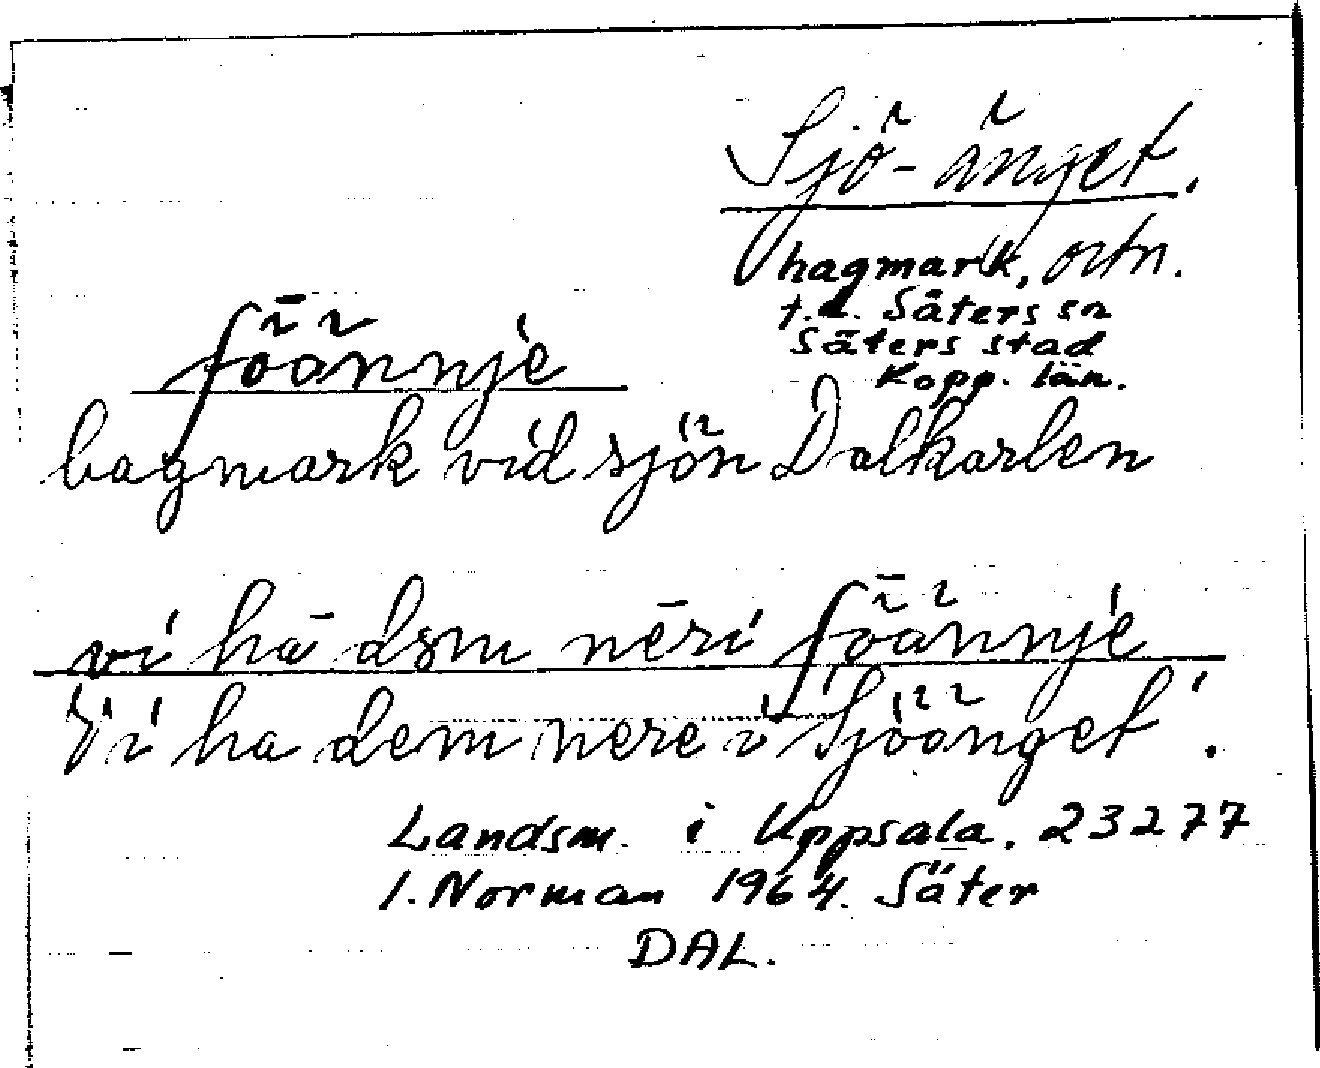 Sjö-änget.
hagmark, ortn.
t.d. Säters sn
Säters stad
Kopp. län.
ʃȫännje
hagmark vid sjön Dalkarlen
vi hā dsm nēri ʃȫännje
Vi ha dem nere i Sjöänget'.
Landsm. i Uppsala. 23277
I. Norman 1964. Säter
DAL.